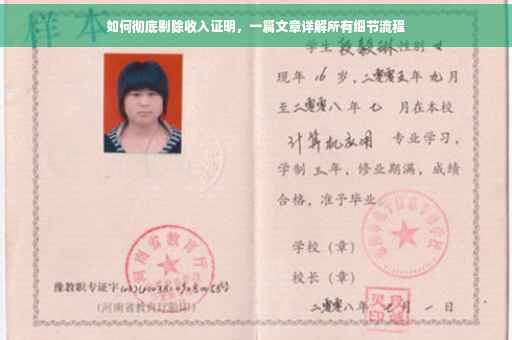 如何彻底剔除收入证明，一篇文章详解所有细节流程
样本
学生段毅琳性别女
现年16岁，二零零五年九月
至二零零八年七月在本校
计算机应用 专业学习，
学制三年，修业期满，成绩
合格，准予毕业。
学校（章）
校长（章）
二零零八年七月一日
河南省教育厅
豫教职专证字
(河南省教育厅验印)